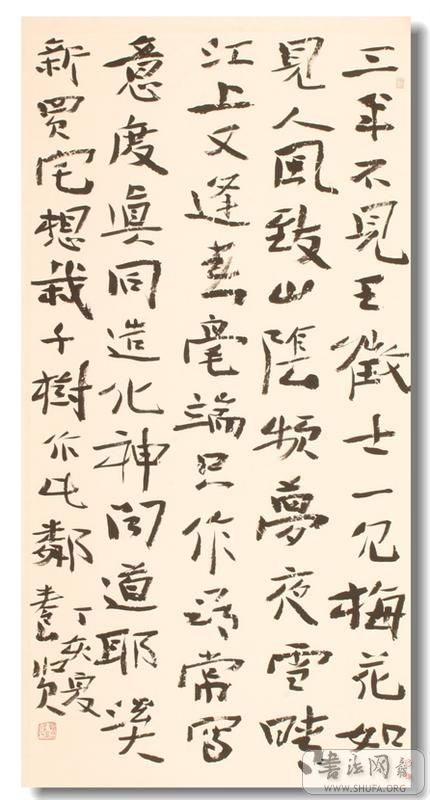 三年不見王徵士一见梅花如
見人風致山陰頻夢夜雪畦
江上又逢春毫端只作尋常寫
意度眞同造化神聞道耶溪
新買宅想栽千樹作比鄰
丁亥夏
书法网
WWW.SHUFA.ORG